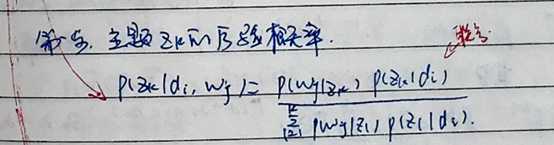 主题 zk 的后验概率.
P(zk|di, wj) = P(wj|zk) P(zk|di) / Σ_{l=1}^{K} P(wj|zl) P(zl|di).